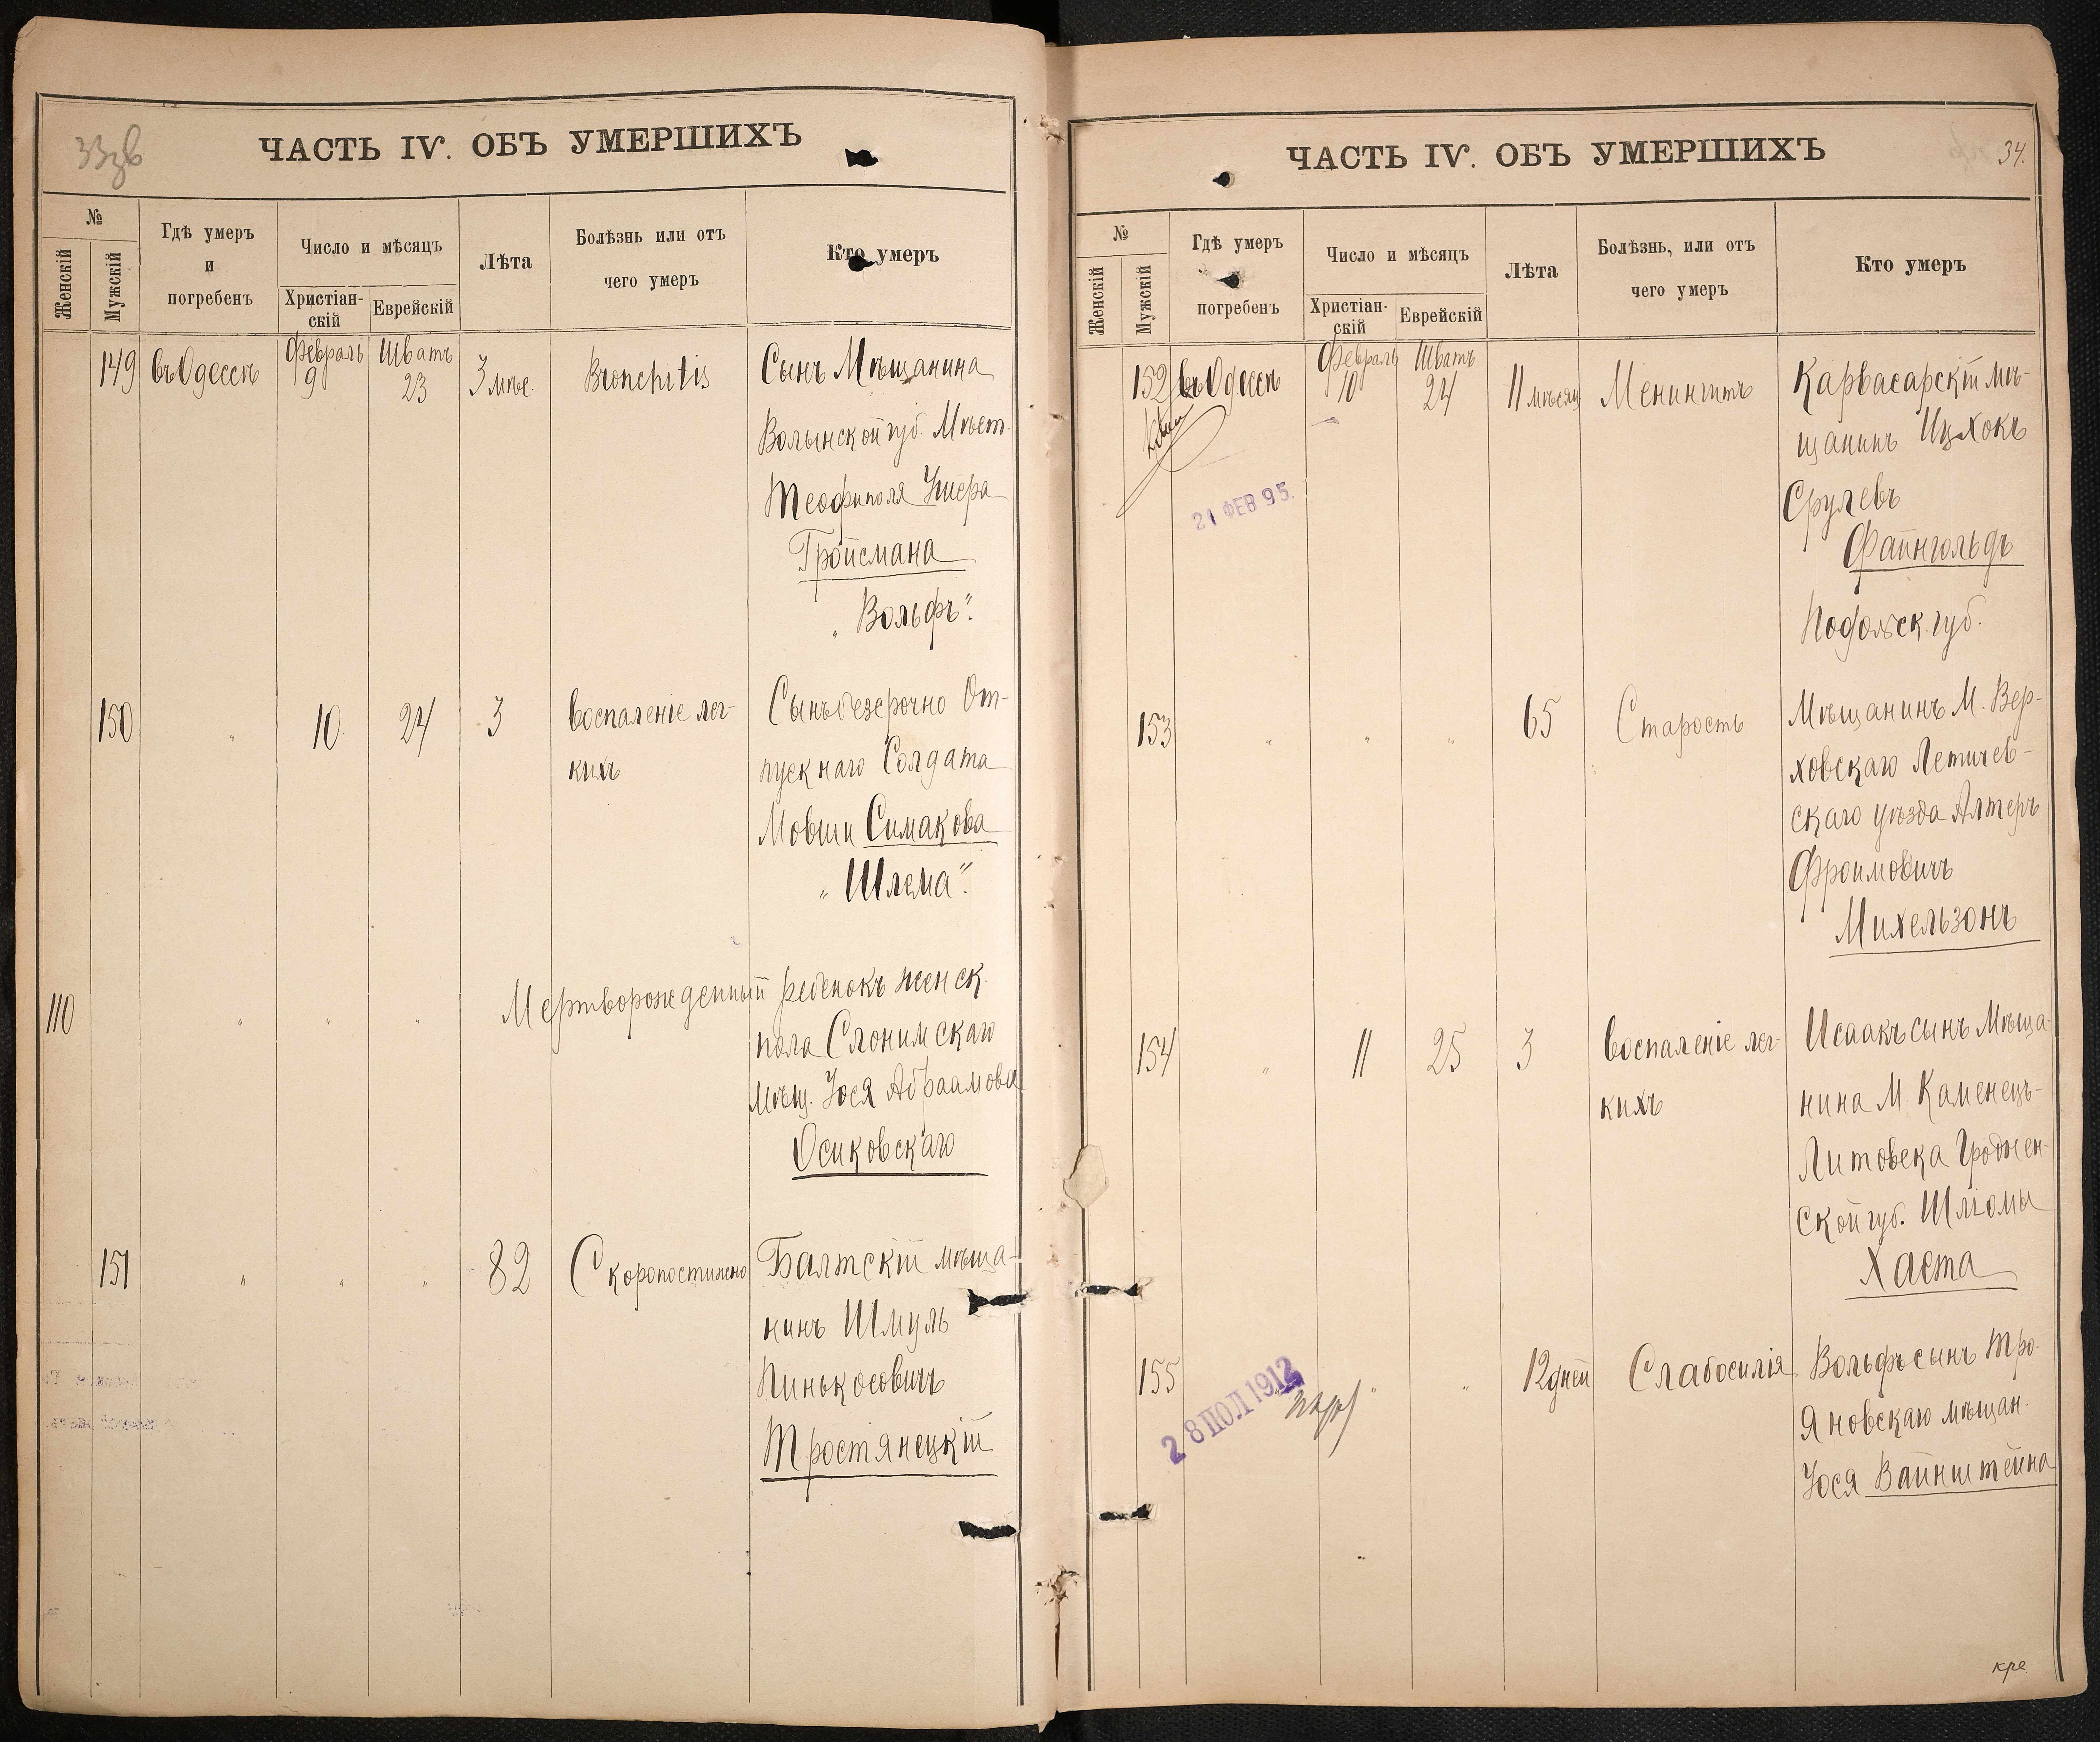 33зв
ЧАСТЬ IV. ОБЪ УМЕРШИХЪ
№
Женскій
Мужскій
Гдѣ умеръ
и
погребенъ
Число и мѣсяцъ
Христіан-
скій
Еврейскій
Лѣта
Болѣзнь или отъ
чего умеръ
Кто умеръ
149 въ Одессѣ Февраль 9 Шватъ 23 3 мѣс. Bronchitis Сынъ Мѣщанина
Волынской губ. Мѣст.
Теофиполя Ушера
Тройсмана
„Вольфъ“.
150 „ 10 24 3 воспаленіе лег- Сынъ безсрочно От-
кихъ пускнаго Солдата
Мовши Симакова
„Шлема“.
110 „ „ „ Мертворожденный ребенокъ женск.
пола Слонимскаго
мѣщ. Іося Абраамова
Осиковскаго
151 „ „ „ 82 Скоропостижно Балтскій мѣща-
нинъ Шмуль
Пинькосовичъ
Тростянецкій
34.
ЧАСТЬ IV. ОБЪ УМЕРШИХЪ
№
Женскій
Мужскій
Гдѣ умеръ
погребенъ
Число и мѣсяцъ
Христіан-
скій
Еврейскій
Лѣта
Болѣзнь, или отъ
чего умеръ
Кто умеръ
152 въ Одессѣ Февраль 10 Шватъ 24 11 мѣсяц Менингитъ Карвасарскій мѣ-
щанинъ Ицхокъ
21 ФЕВ 95.
Срулевъ
Файнгольдъ
Подольск. губ.
153 „ „ „ 65 Старость Мѣщанинъ М. Вер-
ховскаго Летичев-
скаго уѣзда Алтеръ
Фроимовичъ
Михельзонъ
154 „ 11 25 3 воспаленіе лег- Исаакъ сынъ Мѣща-
кихъ нина М. Каменецъ-
Литовска Гроднен-
ской губ. Шліомы
Хаста
155 „ „ 12 дней Слабосилія Вольфъ сынъ Тро-
яновскаго мѣщан.
Іося Вайнштейна
28 ПОЛ 1912
кре